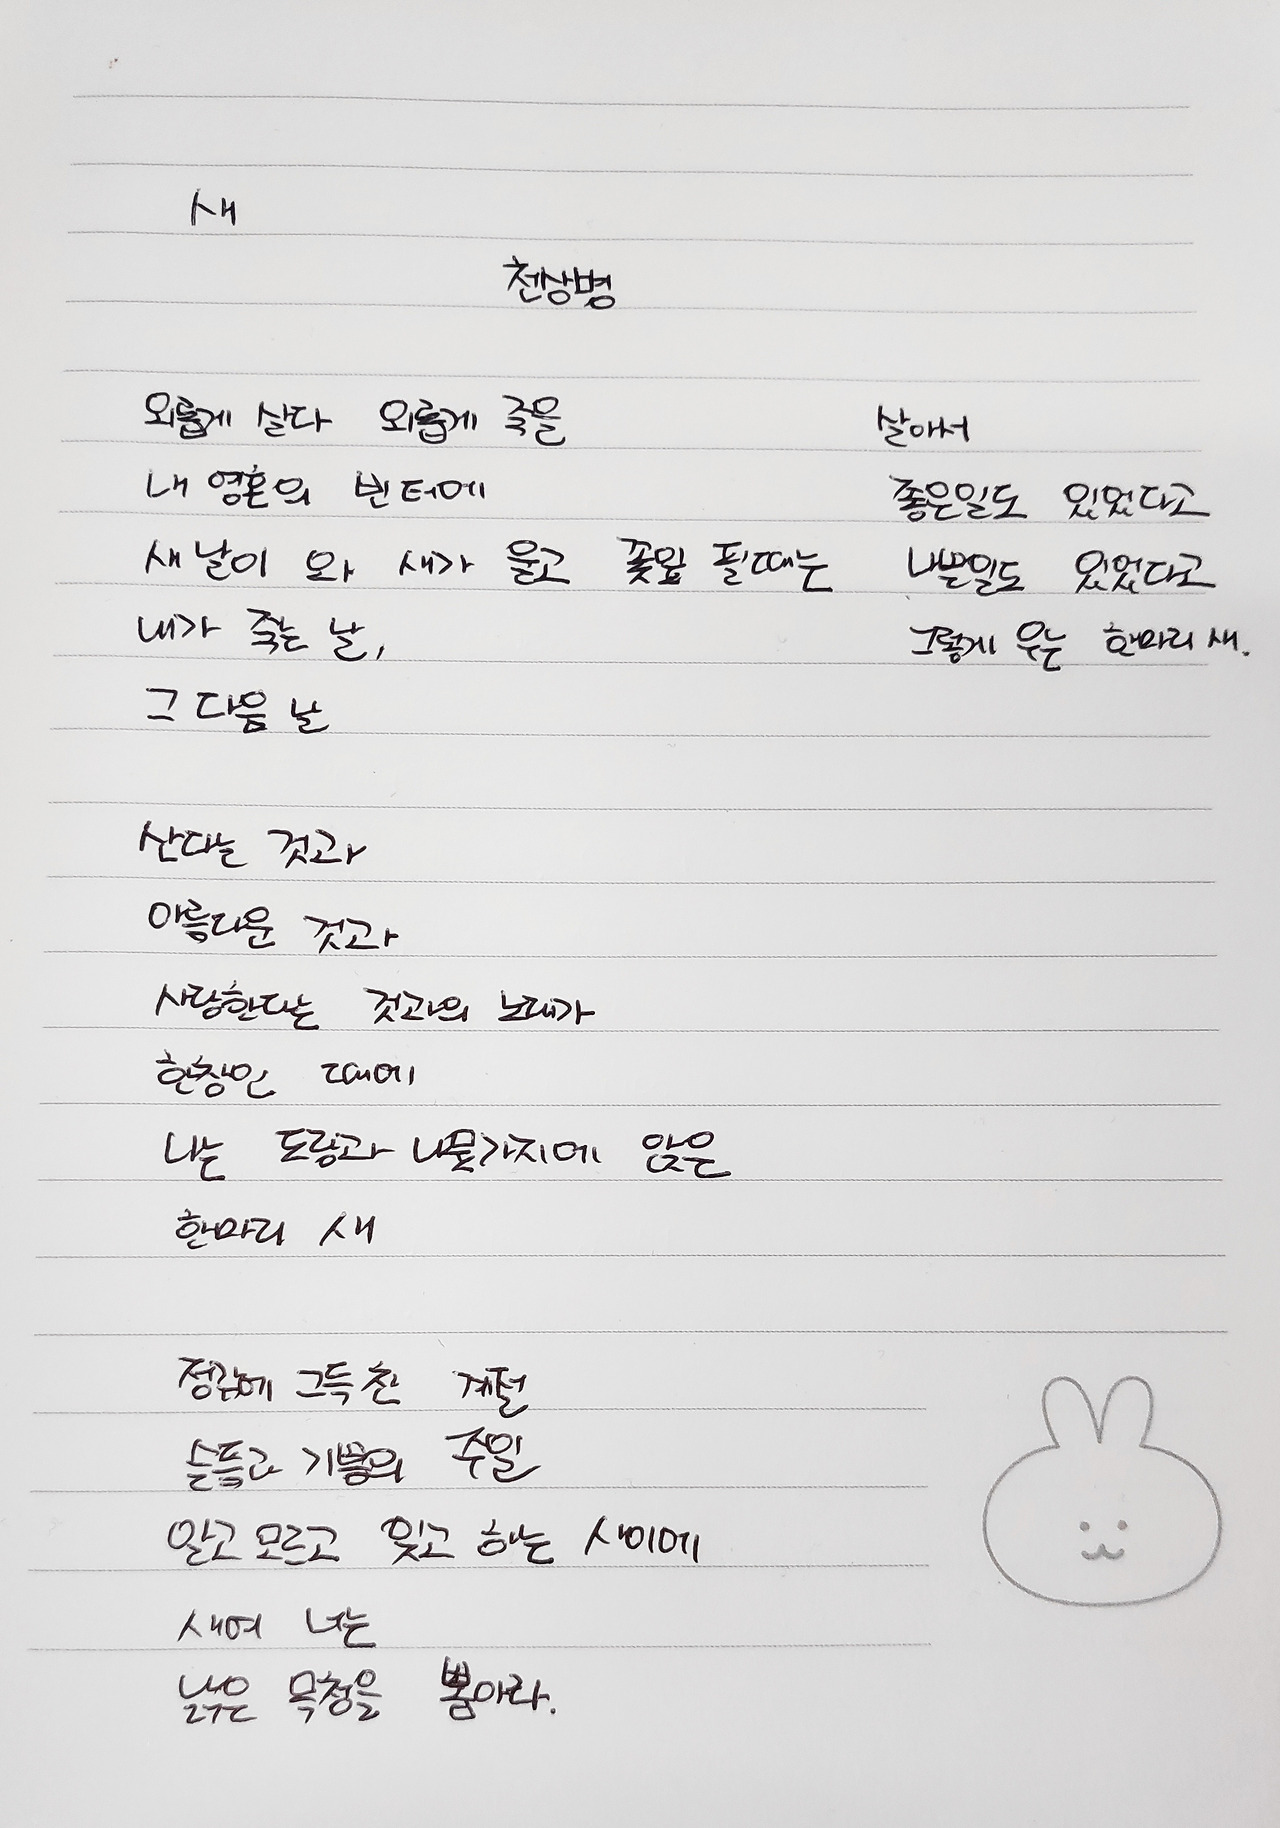 새
천상병
외롭게 살다 외롭게 죽을
내 영혼의 빈 터에
새날이 와 새가 울고 꽃잎 필때는
내가 죽는 날,
그 다음 날
산다는 것과
아름다운 것과
사랑한다는 것과의 노래가
한창인 때에
나는 도랑과 나뭇가지에 앉은
한마리 새
정감에 그득찬 계절
슬픔과 기쁨의 주일
알고 모르고 잊고 하는 사이에
새여 너는
낡은 목청을 뽑아라.
살아서
좋은일도 있었다고
나쁜일도 있었다고
그렇게 우는 한마리 새.